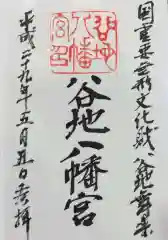 国重要無形文化財 谷地舞楽
谷地八幡宮
平成二十九年五月五日奉拝